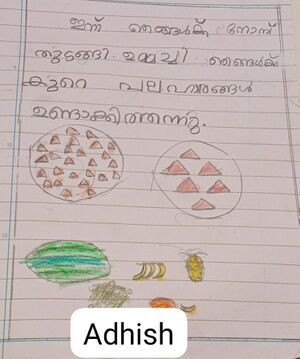 ഇന്ന് ഞങ്ങൾക്ക് നോമ്പ്
തുടങ്ങി. ഉമ്മച്ചി ഞങ്ങൾക്ക്
കുറെ പലഹാരങ്ങൾ
ഉണ്ടാക്കിത്തന്നു.
Adhish